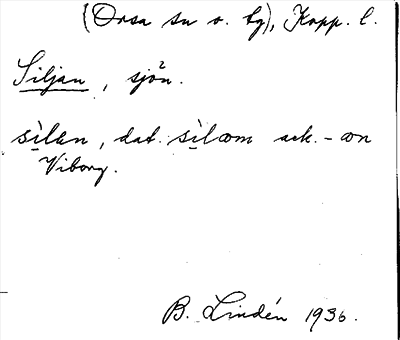 (Orsa sn o. tg), Kopp. l.
Siljan, sjön.
sìlen, dat. sìlæm ack. -æn
Viborg.
B. Lindén 1936.